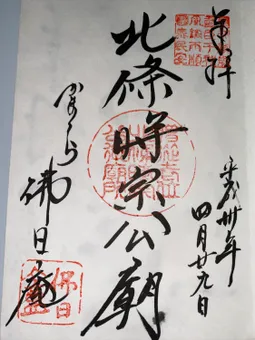 奉拝
平成卅年
四月廿九日
北條時宗公廟
かまくら
佛日庵
佛日